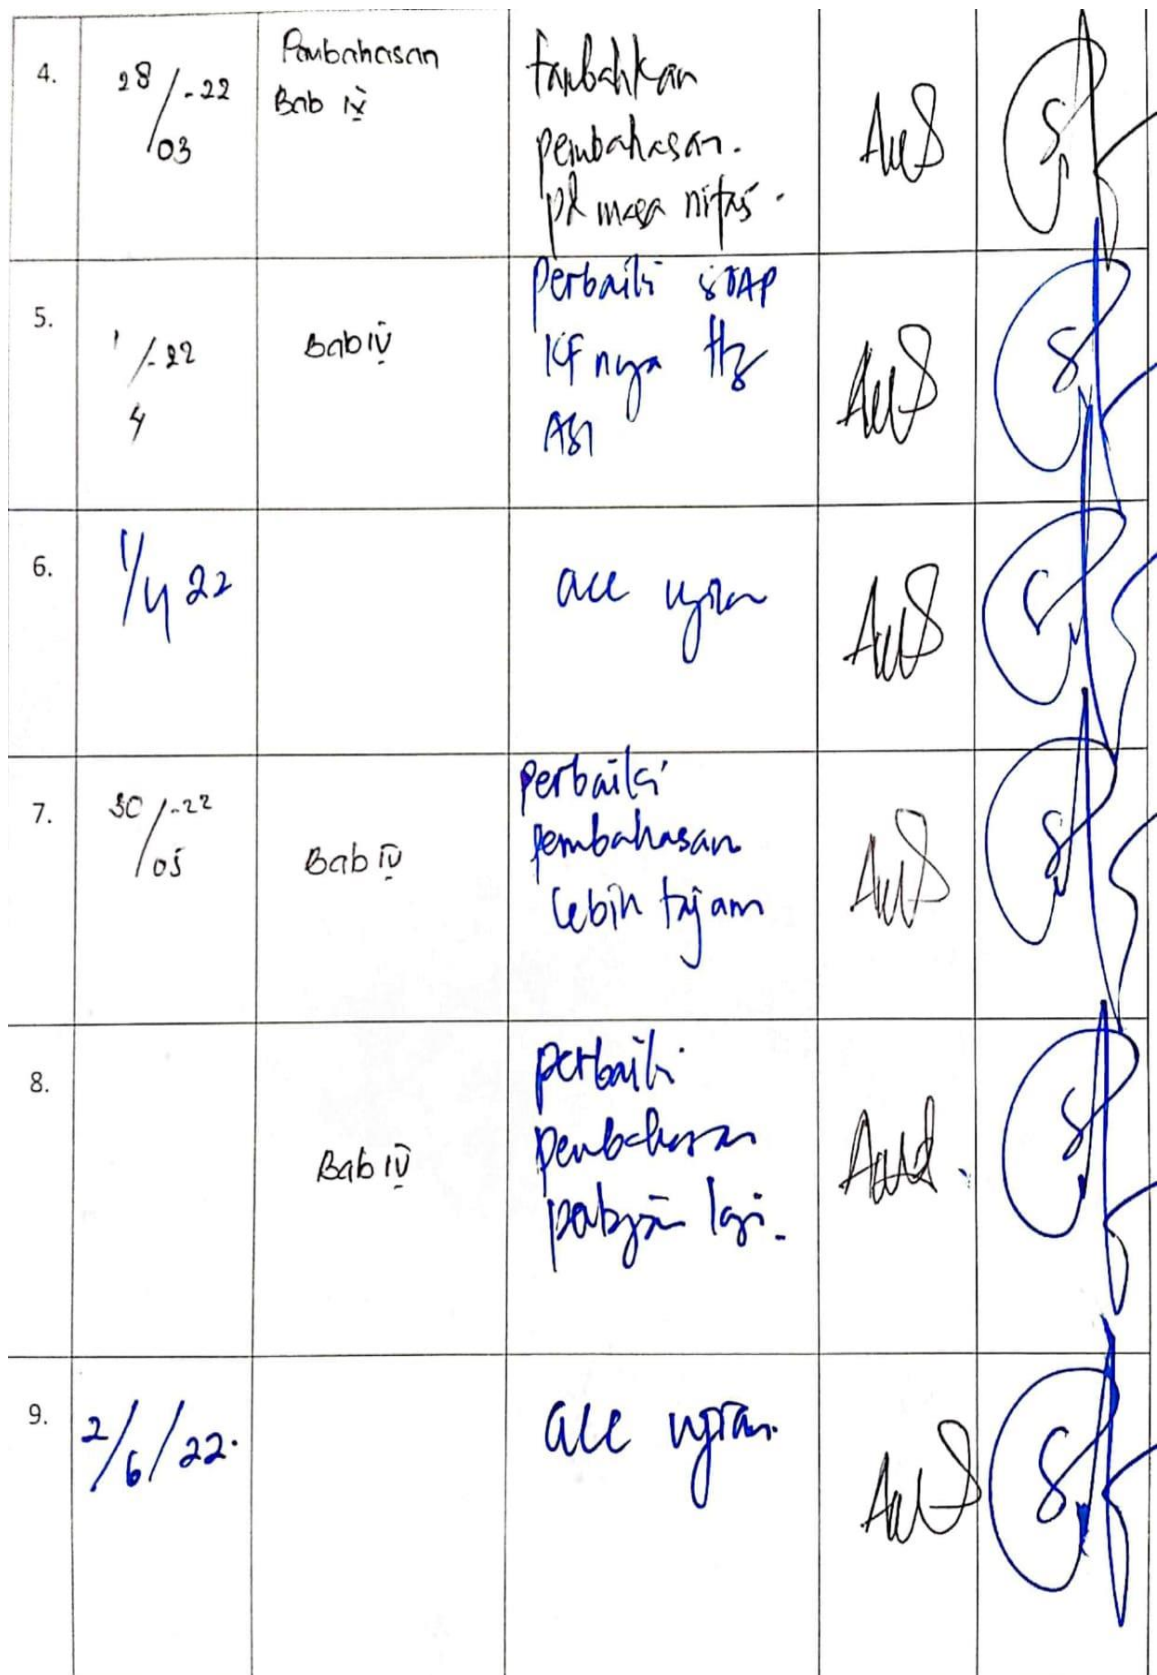 4.
28/03-22
Pembahasan
Bab IV
tambahkan
pembahasan.
pd masa nifas.
5.
1/4-22
Bab IV
Perbaiki SOAP
KF nya
ASI
6.
1/4 22
acc ujian
7.
30/05-22
Bab IV
perbaiki
pembahasan
lebih tajam
8.
Bab IV
perbaiki
pembahasan
lagi.
9.
2/6/22.
acc ujian.